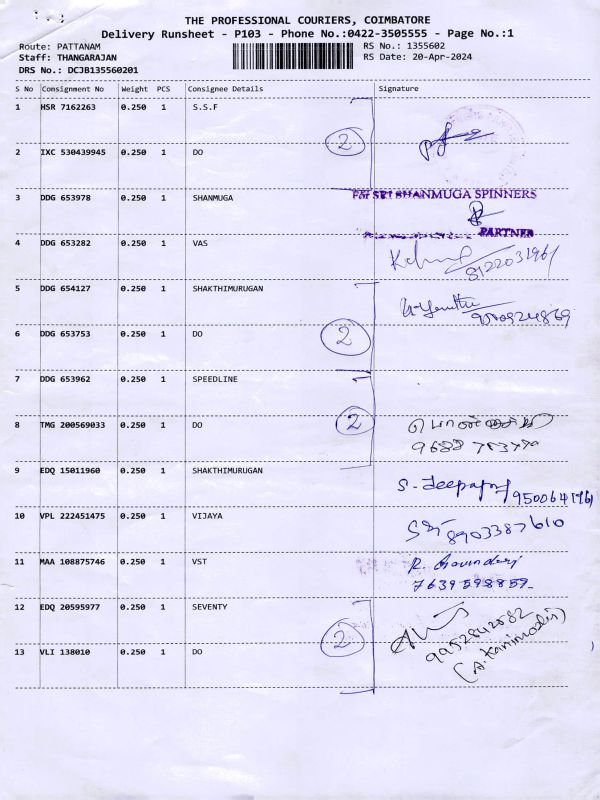 THE PROFESSIONAL COURIERS, COIMBATORE
Delivery Runsheet - P103 - Phone No.:0422-3505555 - Page No.:1
Route: PATTANAM
RS No.: 1355602
Staff: THANGARAJAN
RS Date: 20-Apr-2024
DRS No.: DCJB135560201
S No Consignment No Weight PCS Consignee Details Signature
1 HSR 7162263 0.250 1 S.S.F
2
2 IXC 530439945 0.250 1 DO
3 DDG 653978 0.250 1 SHANMUGA
For SRI SHANMUGA SPINNERS
PARTNER
4 DDG 653282 0.250 1 VAS
8122031961
5 DDG 654127 0.250 1 SHAKTHIMURUGAN
9500924869
6 DDG 653753 0.250 1 DO
2
7 DDG 653962 0.250 1 SPEEDLINE
8 TMG 200569033 0.250 1 DO
2
9 EDQ 15011960 0.250 1 SHAKTHIMURUGAN
S. Deepa
10 VPL 222451475 0.250 1 VIJAYA
8903387610
11 MAA 108875746 0.250 1 VST
R. Govindaraj
7639598859
12 EDQ 20595977 0.250 1 SEVENTY
9952842582
2
13 VLI 138010 0.250 1 DO